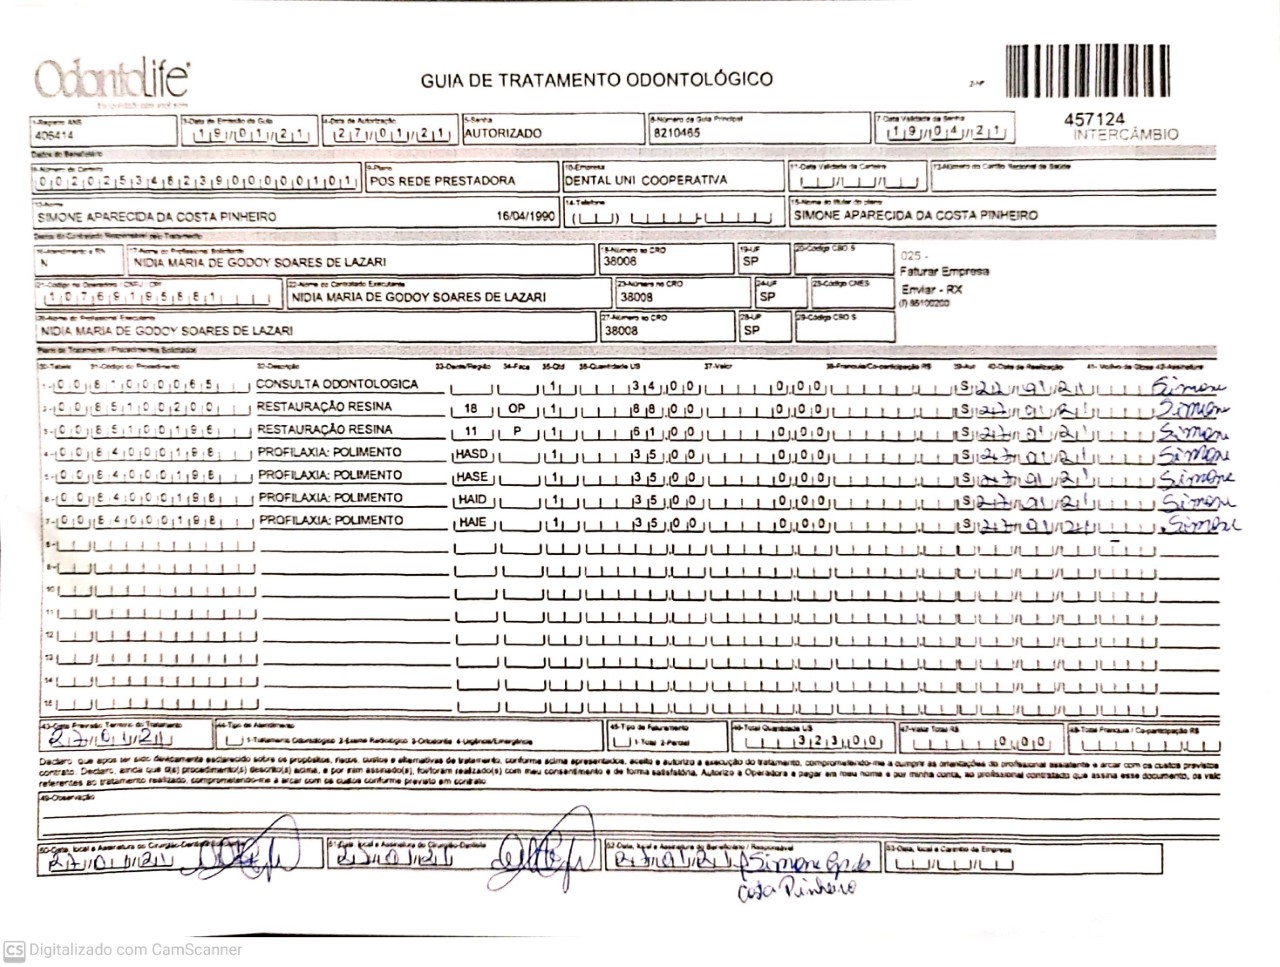 OdontoLife
GUIA DE TRATAMENTO ODONTOLÓGICO
457124
INTERCÂMBIO
1-Registro ANS
406414
3-Data de Emissão da Guia
19/01/21
4-Data de Autorização
27/01/21
5-Senha
AUTORIZADO
6-Número da Guia Principal
8210465
7-Data Validade da Senha
19/04/21
Dados do Beneficiário
8-Número da Carteira
00202534623900000101
9-Plano
POS REDE PRESTADORA
10-Empresa
DENTAL UNI COOPERATIVA
11-Data Validade da Carteira
12-Número do Cartão Nacional de Saúde
13-Nome
SIMONE APARECIDA DA COSTA PINHEIRO 16/04/1990
14-Telefone
15-Nome do titular do plano
SIMONE APARECIDA DA COSTA PINHEIRO
Dados do Contratado Responsável pelo Tratamento
16-Atendimento a RN
N
17-Nome do Profissional Solicitante
NIDIA MARIA DE GODOY SOARES DE LAZARI
18-Número no CRO
38008
19-UF
SP
20-Código CBO S
025 -
Faturar Empresa
Enviar - RX
21-Código na Operadora / CNPJ / CPF
10769195881
22-Nome do Contratado Executante
NIDIA MARIA DE GODOY SOARES DE LAZARI
23-Número no CRO
38008
24-UF
SP
25-Código CNES
26-Nome do Profissional Executante
NIDIA MARIA DE GODOY SOARES DE LAZARI
27-Número no CRO
38008
28-UF
SP
29-Código CBO S
Plano de Tratamento / Procedimentos Solicitados
30-Tabela 31-Código do Procedimento 32-Descrição 33-Dente/Região 34-Face 35-Qtd 36-Quantidade US 37-Valor 38-Franquia/Co-participação R$ 39-Aut 40-Data de Realização 41- Motivo da Glosa 42-Assinatura
1- 00 81000065 CONSULTA ODONTOLOGICA 1 34,00 0,00 S 27/01/21 Simone
2- 00 85100200 RESTAURAÇÃO RESINA 18 OP 1 88,00 0,00 S 27/01/21 Simone
3- 00 85100196 RESTAURAÇÃO RESINA 11 P 1 61,00 0,00 S 27/01/21 Simone
4- 00 84000198 PROFILAXIA: POLIMENTO HASD 1 35,00 0,00 S 27/01/21 Simone
5- 00 84000198 PROFILAXIA: POLIMENTO HASE 1 35,00 0,00 S 27/01/21 Simone
6- 00 84000198 PROFILAXIA: POLIMENTO HAID 1 35,00 0,00 S 27/01/21 Simone
7- 00 84000198 PROFILAXIA: POLIMENTO HAJE 1 35,00 0,00 S 27/01/21 Simone
8-
9-
10-
11
12
13
14
15
43-Data Previsão Término do Tratamento
27/01/21
44-Tipo de Atendimento
1-Tratamento Odontológico 2-Exame Radiológico 3-Ortodontia 4-Urgência/Emergência
45-Tipo de Faturamento
1-Total 2-Parcial
46-Total Quantidade US
323,00
47-Valor Total R$
0,00
48-Total Franquia / Co-participação R$
Declaro, que após ter sido devidamente esclarecido sobre os propósitos, riscos, custos e alternativas de tratamento, conforme acima apresentados, aceito e autorizo a execução do tratamento, comprometendo-me a cumprir as orientações do profissional assistente e arcar com os custos previstos
contrato. Declaro, ainda que o(s) procedimento(s) descrito(s) acima, e por mim assinado(s), foi/foram realizado(s) com meu consentimento e de forma satisfatória. Autorizo a Operadora a pagar em meu nome e por minha conta, ao profissional contratado que assina esse documento, os valo
referentes ao tratamento realizado, comprometendo-me a arcar com os custos conforme previsto em contrato
49-Observação
50-Data, local e Assinatura do Cirurgião-Dentista
27/01/21
51-Data, local e Assinatura do Cirurgião-Dentista
27/01/21
52-Data, local e Assinatura do Beneficiário / Responsável
27/01/21 Simone Ap da
Costa Pinheiro
53-Data, local e Carimbo da Empresa
CS Digitalizado com CamScanner